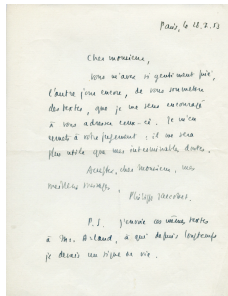 Paris, le 18.2.53
Cher monsieur,
vous m'avez si gentiment prié,
l'autre jour encore, de vous soumettre
des textes, que je me sens encouragé
à vous adresser ceux-ci. Je m'en
remets à votre jugement ; il me sera
plus utile que mes interminables doutes.
Acceptez, cher monsieur, mes
meilleurs messages,
Philippe Jaccottet.
P.S. J'envoie ces mêmes textes
à Mr. Arland, à qui depuis longtemps
je devais un signe de vie.